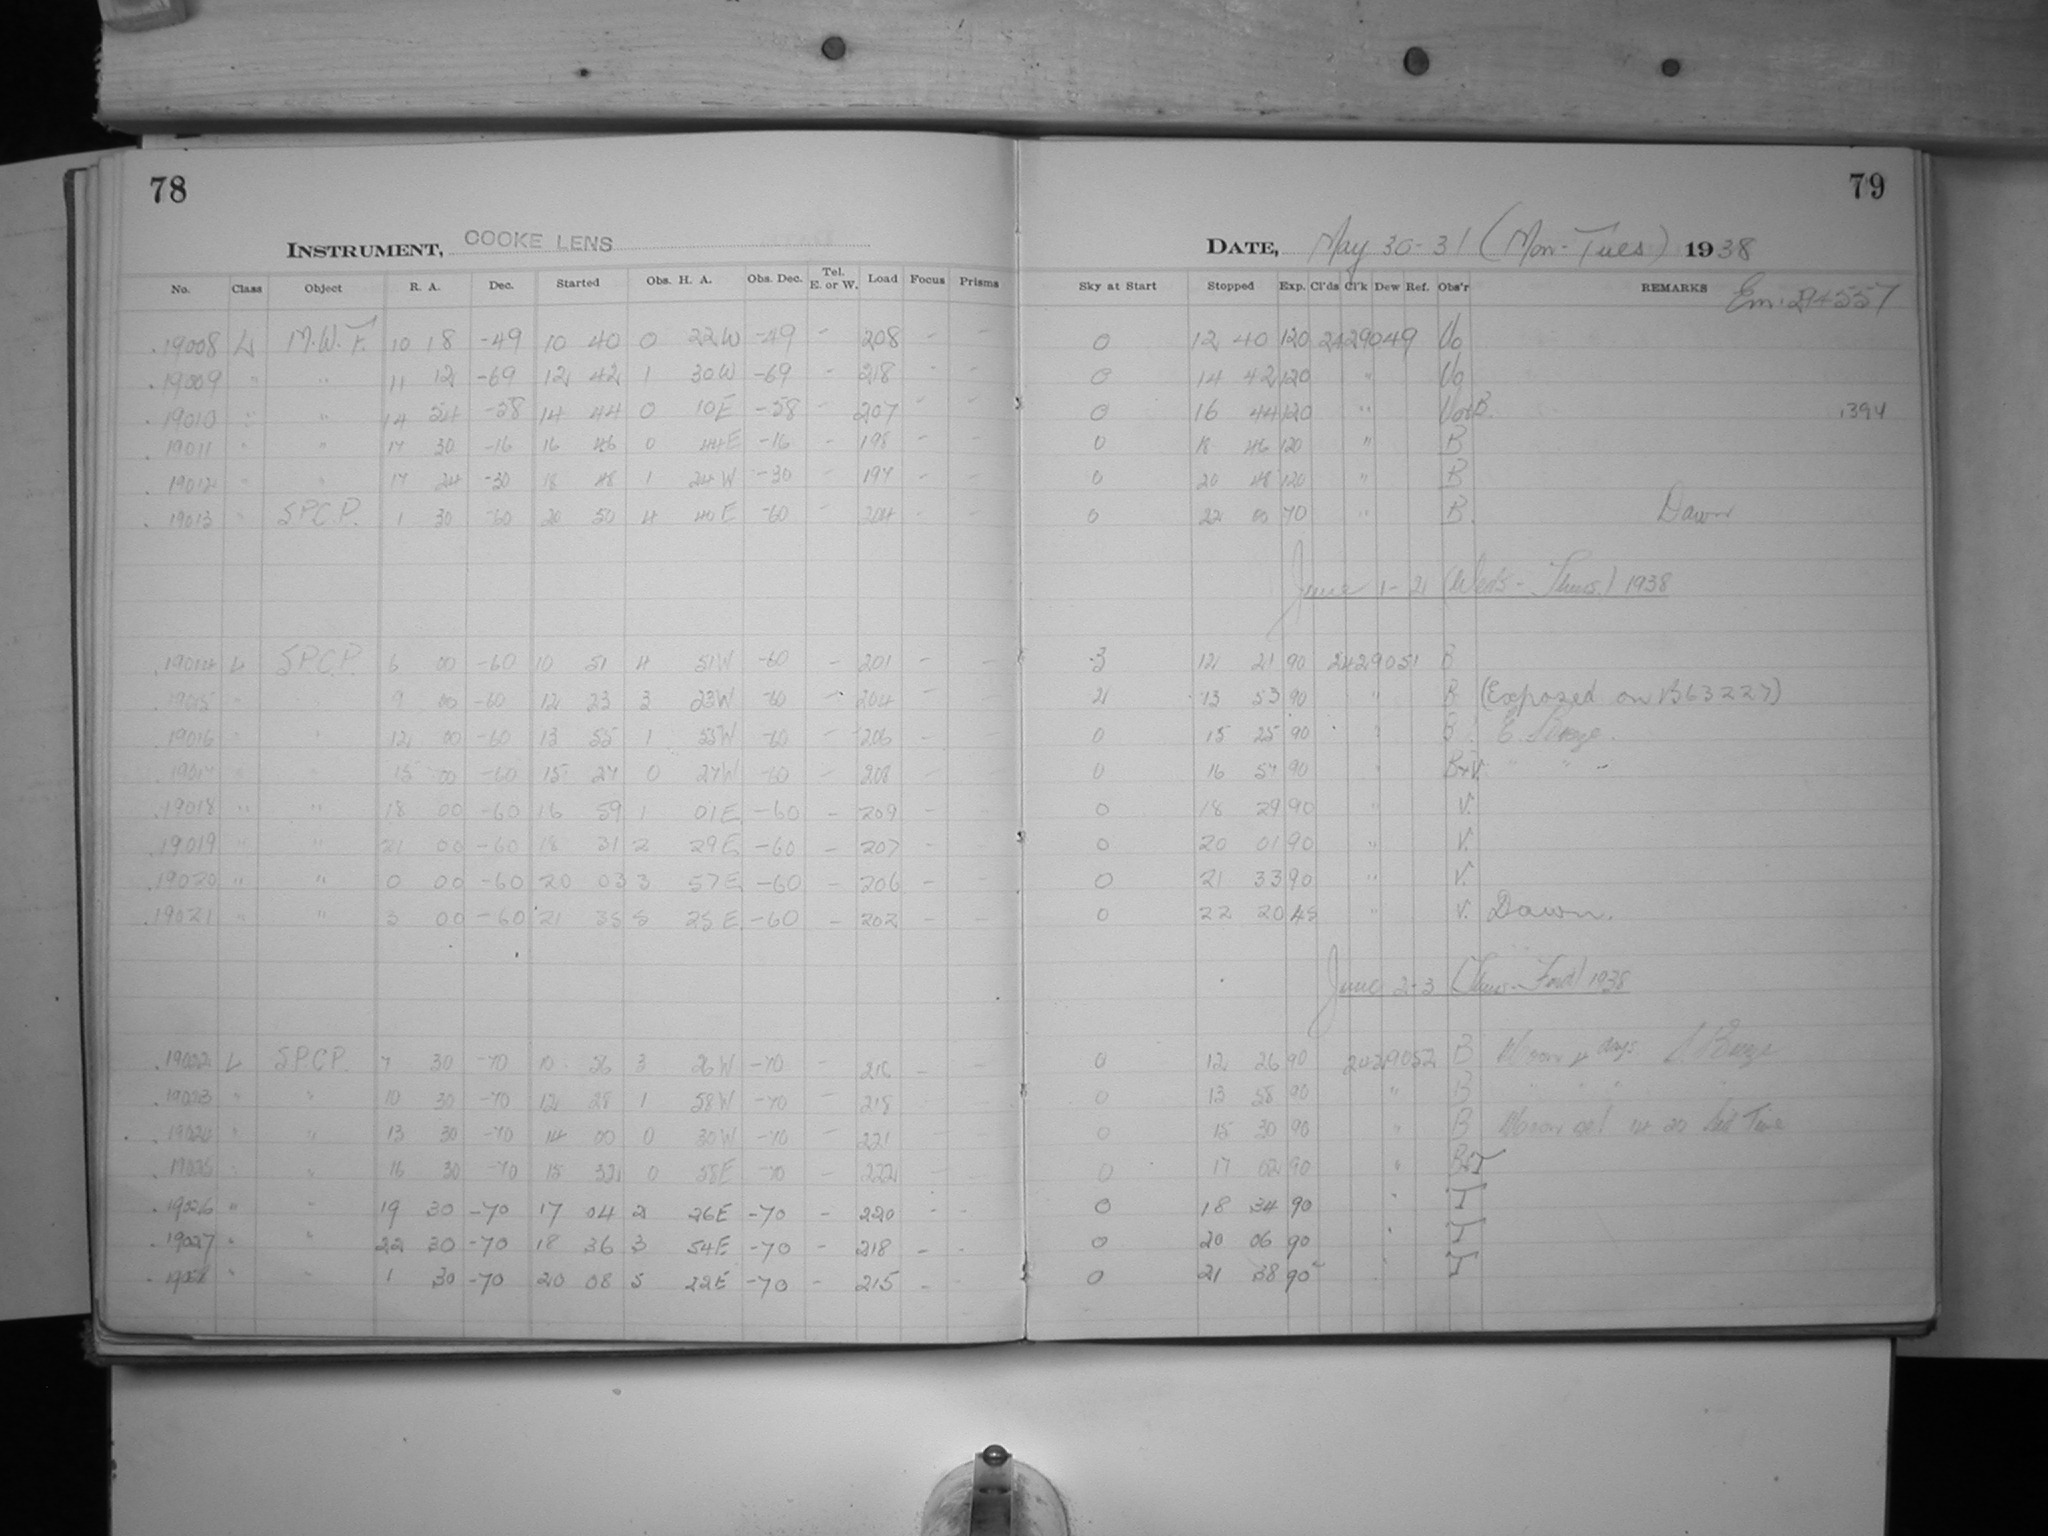 78
INSTRUMENT, COOKE LENS
No. Class Object R. A. Dec. Started Obs. H. A. Obs. Dec. Tel. E. or W. Load Focus Prisms
19008 L M.W.F. 10 18 -49 10 40 0 22W -49 - 208 - -
19009 " " 11 12 -69 12 42 1 30W -69 - 218 - -
19010 " " 14 54 -58 14 44 0 10E -58 - 207 - -
19011 " " 17 30 -16 16 46 0 44E -16 - 198 - -
19012 " " 17 24 -30 18 48 1 24W -30 - 197 - -
19013 " S.P.C.P. 1 30 -60 20 50 4 40E -60 - 204 - -
19014 L S.P.C.P. 6 00 -60 10 51 4 51W -60 - 201 - -
19015 " " 9 00 -60 12 23 3 23W -60 - 204 - -
19016 " " 12 00 -60 13 55 1 55W -60 - 206 - -
19017 " " 15 00 -60 15 27 0 27W -60 - 208 - -
19018 " " 18 00 -60 16 59 1 01E -60 - 209 - -
19019 " " 21 00 -60 18 31 2 29E -60 - 207 - -
19020 " " 0 00 -60 20 03 3 57E -60 - 206 - -
19021 " " 3 00 -60 21 35 5 25E -60 - 202 - -
19022 L S.P.C.P. 7 30 -70 10 56 3 26W -70 - 216 - -
19023 " " 10 30 -70 12 28 1 58W -70 - 218 - -
19024 " " 13 30 -70 14 00 0 30W -70 - 221 - -
19025 " " 16 30 -70 15 32 0 58E -70 - 222 - -
19026 " " 19 30 -70 17 04 2 26E -70 - 220 - -
19027 " " 22 30 -70 18 36 3 54E -70 - 218 - -
19028 " " 1 30 -70 20 08 5 22E -70 - 215 - -
79
DATE, May 30-31 (Mon-Tues) 1938
Sky at Start Stopped Exp. Cl'ds Cl'k Dew Ref. Obs'r REMARKS Em. 24557
0 12 40 120 2429049 Vo
0 14 42 120 " Vo
0 16 44 120 " Vo+B. .394
0 18 46 120 " B
0 20 48 120 " B
0 22 00 70 " B. Dawn
June 1-2 (Weds-Thurs.) 1938
3 12 21 90 2429051 B
2 13 53 90 " B (Exposed on B63227)
0 15 25 90 " B
0 16 57 90 " B+V. " "
0 18 29 90 " V.
0 20 01 90 " V.
0 21 33 90 " V.
0 22 20 45 " V. Dawn.
June 2-3 (Thurs-Frid) 1938
0 12 26 90 2429052 B Moon 4 days
0 13 58 90 " B " " "
0 15 30 90 " B Moon set 14 20 Sid Time
0 17 02 90 " B&T
0 18 34 90 " T
0 20 06 90 " T
0 21 38 90 " T